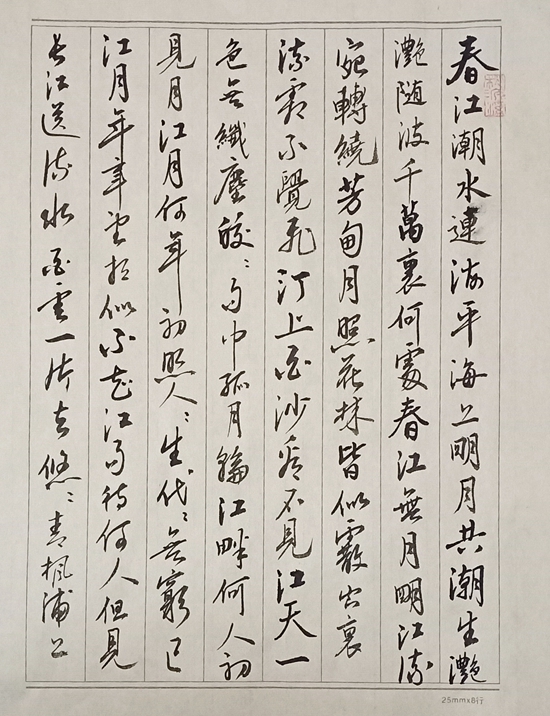 春江潮水連海平海上明月共潮生灩
灩随波千萬裏何處春江無月明江流
宛轉繞芳甸月照花林皆似霰空裏
流霜不覺飛汀上白沙看不見江天一
色無纖塵皎〻空中孤月輪江畔何人初
見月江月何年初照人〻生代〻無窮已
江月年年望相似不知江月待何人但見
長江送流水白雲一片去悠〻青楓浦上
25mmx8行